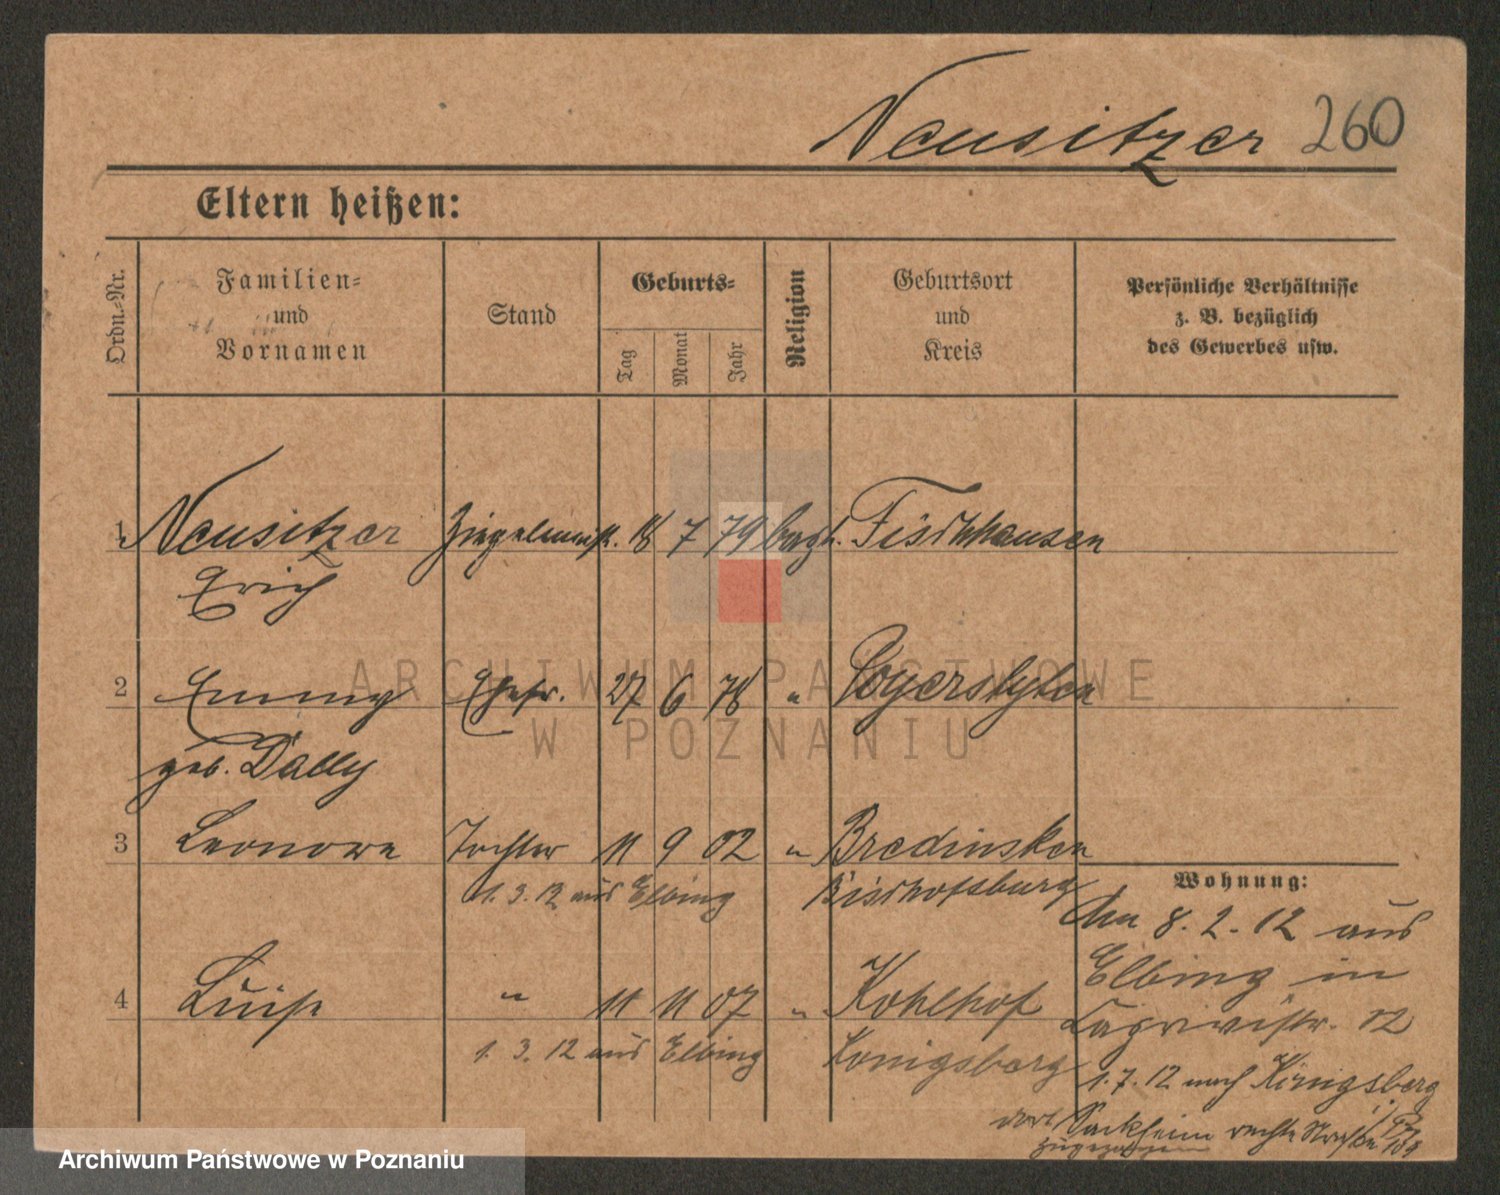 Neusitzer 260
Eltern heißen:
Ordn.-Nr.
Familien-
und
Vornamen
Stand
Geburts-
Tag
Monat
Jahr
Religion
Geburtsort
und
Kreis
Persönliche Verhältnisse
z. B. bezüglich
des Gewerbes usw.
1 Neusitzer Ziegelmstr. 18 7 79 Fischhausen
Erich
2 Emmy Ehefr. 27 6 78 "
geb. Dally
3 Leonore Tochter 11 9 02 " Bredinsken
1. 3. 12 aus Elbing Bischofsburg
Wohnung:
Am 8. 2. 12 aus
Elbing in
4 Luise " 11 11 07 " Kohlhof
1. 3. 12 aus Elbing Königsberg
12
1. 7. 12 nach Königsberg
dort Sackheim rechte Straße
zugezogen
ARCHIWUM PAŃSTWOWE
W POZNANIU
Archiwum Państwowe w Poznaniu